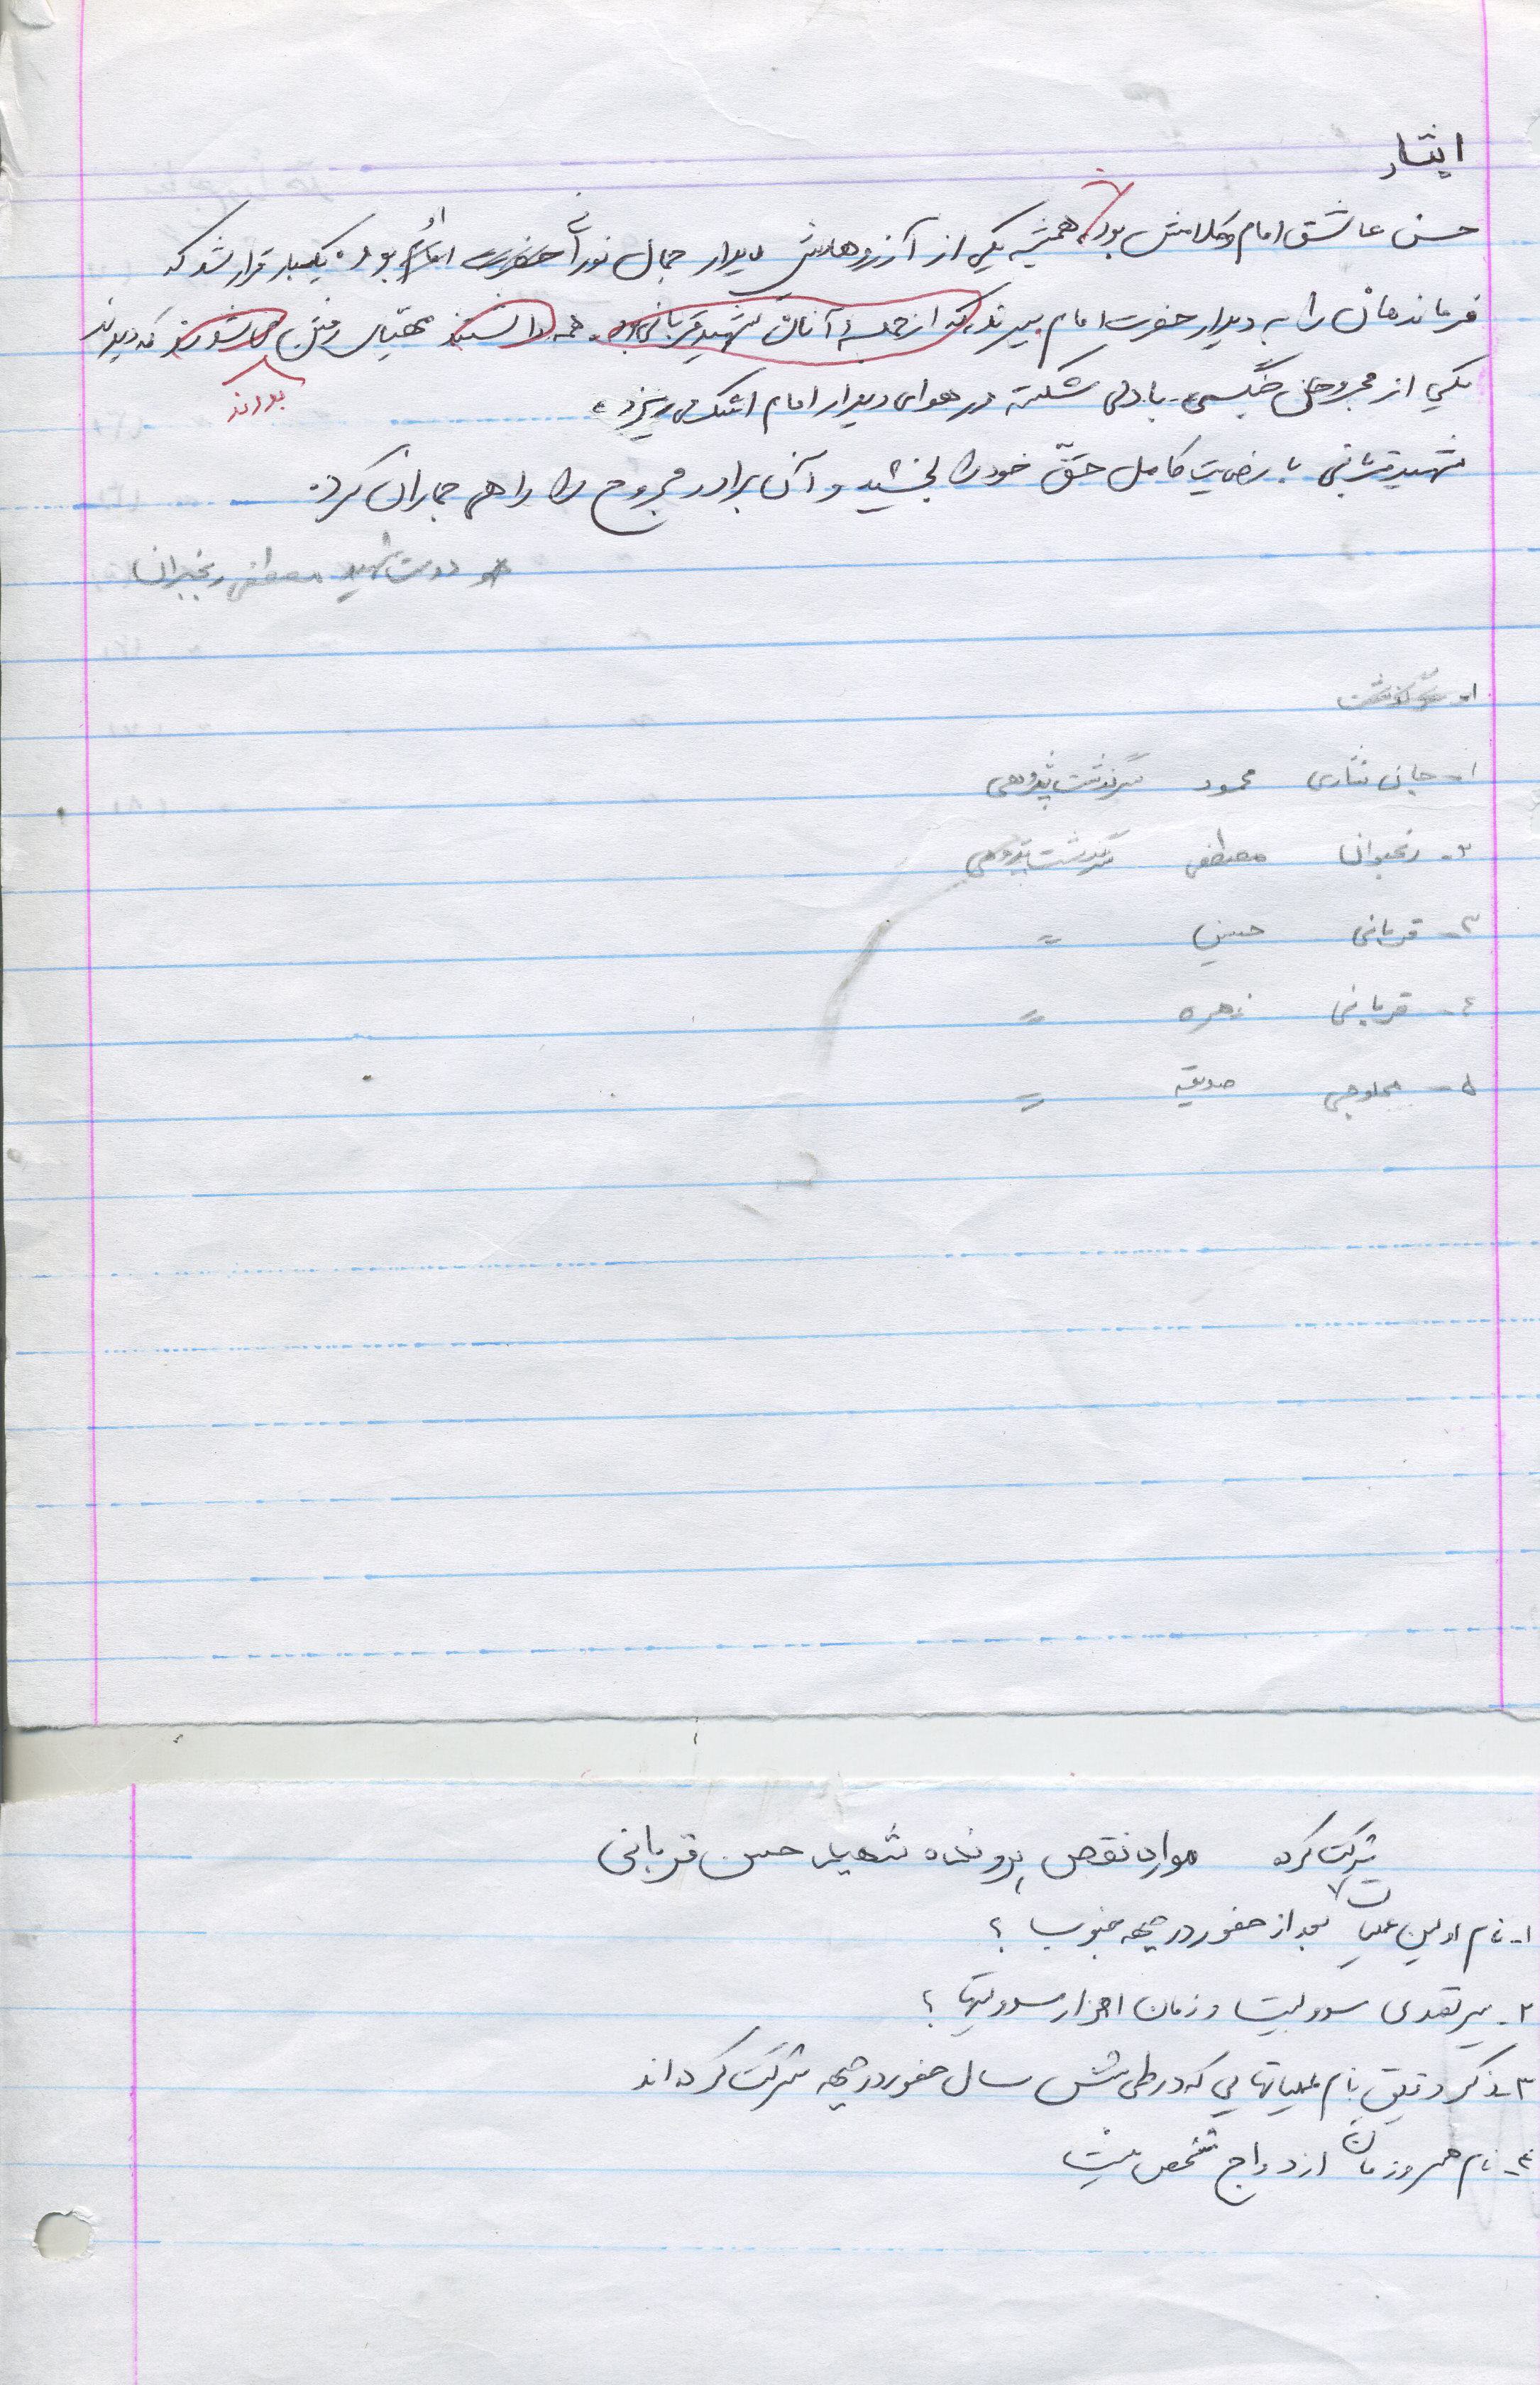 ایثار
حسن عاشق امام و کلامش بود. همیشه یکی از آرزوهایش دیدار جمال نورانی حضرت امام بود. یکبار قرار شد که
فرماندهان را به دیدار حضرت امام ببرند، که از جمله آنان شهید قربانی بود. همه مهیای رفتن می‌شدند که دیدند
بودند
یکی از مجروحان جنگی با دلی شکسته در هوای دیدار امام اشک می‌ریزد.
شهید قربانی با رضایت کامل حقّ خود را بخشید و آن برادر مجروح را راهی جماران کرد.
دوست شهید مصطفی رنجبران
۱- سرگذشت
۱- جان نثاری محمود سرگذشت پژوهی
۲- رنجبران مصطفی سرگذشت پژوهی
۳- قربانی حسین =
۴- قربانی زهره =
۵- محلوجی صدیقه =
شرکت کرده موارد نقص پرونده شهید حسن قربانی
۱- نام اولین عملیات بعد از حضور در جبهه جنوب ؟
۲- سیر تصدی مسوولیت و زمان احراز مسوولیتها ؟
۳- ذکر دقیق نام عملیاتهایی که در طی شش سال حضور در جبهه شرکت کرده اند
۴- نام همسر و زمان ازدواج مشخص نیست